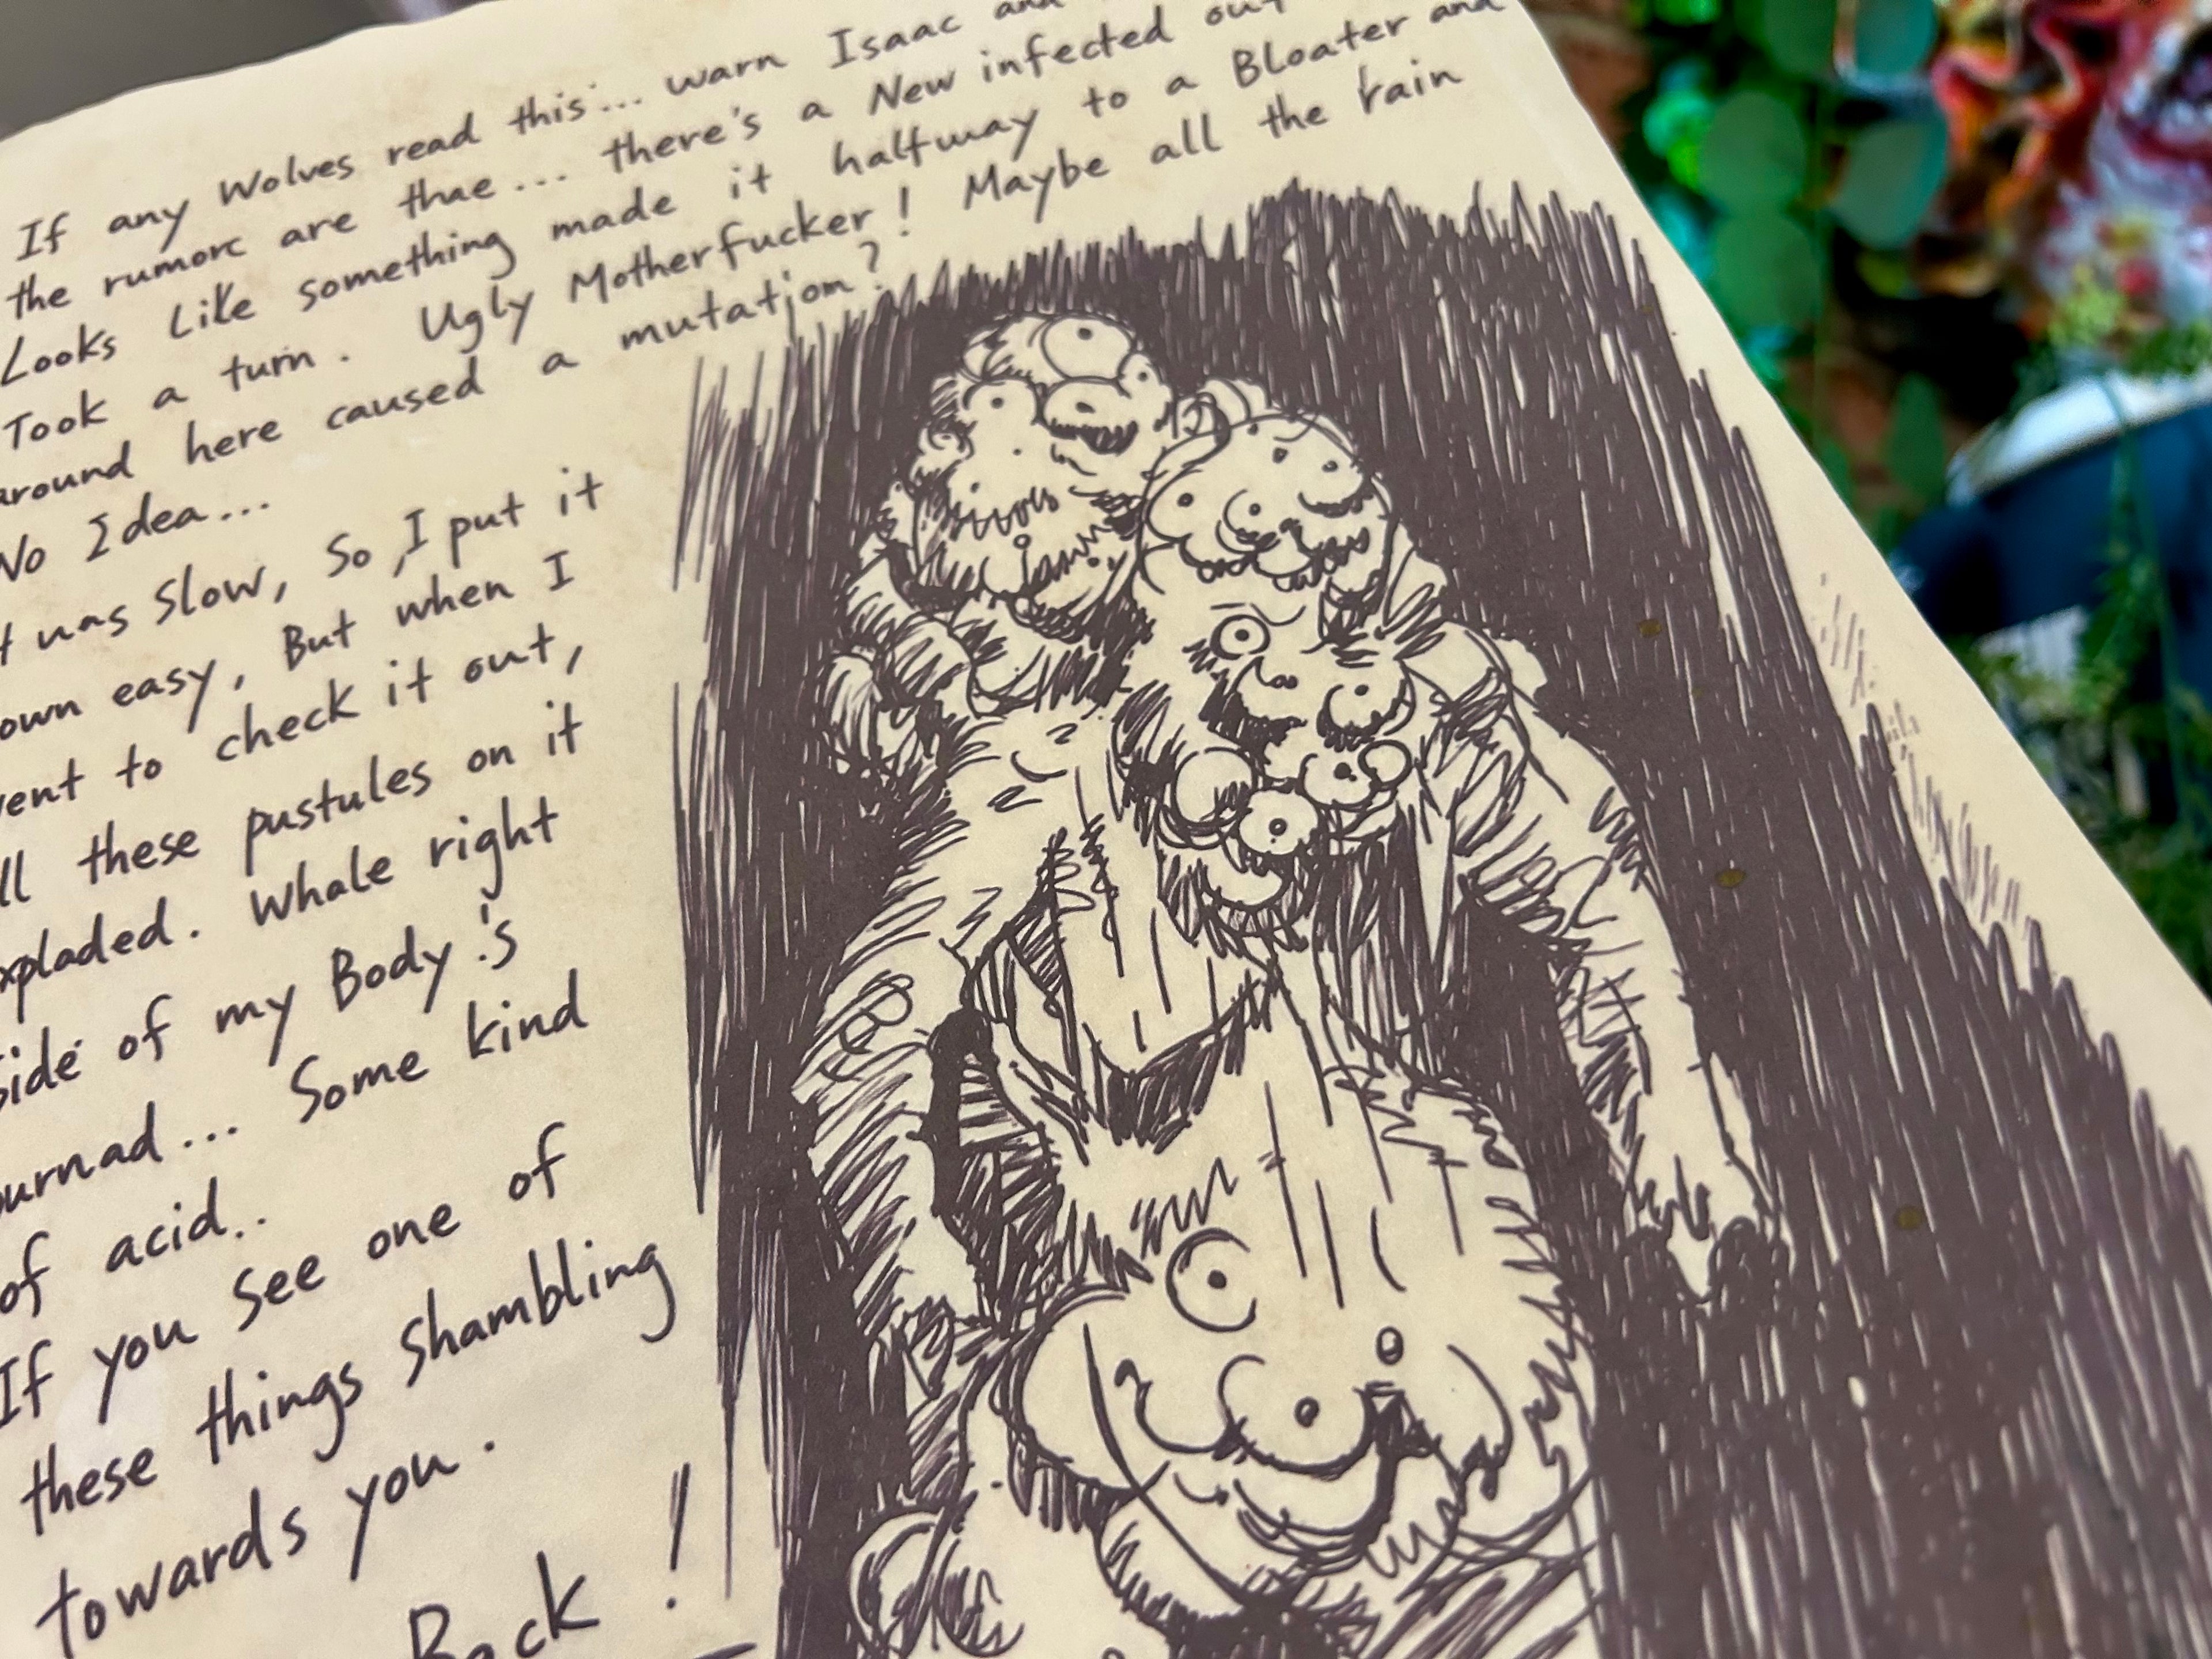 If any Wolves read this... warn Isaac and
the rumorc are thae... there's a New infected out
Looks Like something made it halfway to a Bloater and
Took a turn. Ugly Motherfucker! Maybe all the rain
around here caused a mutation?
No Idea...
was slow, So, I put it
own easy, But when I
ent to check it out,
ll these pustules on it
xpladed. Whale right
side of my Body's
urnad... Some kind
of acid..
If you see one of
these things shambling
towards you.
Back!